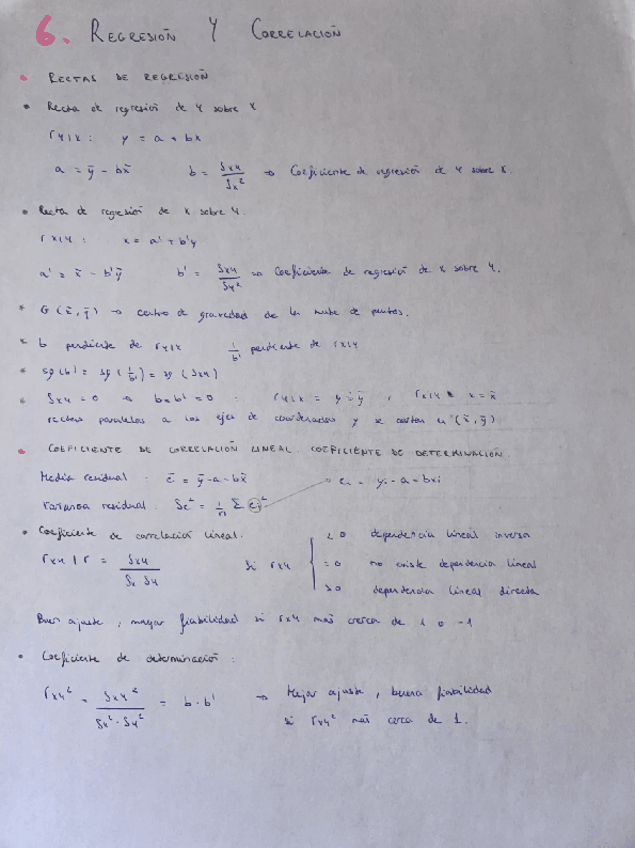 6. REGRESIÓN Y CORRELACIÓN
• RECTAS DE REGRESIÓN
• Recta de regresión de Y sobre X
r y|x : y = a + bx
a = ȳ - bx̄ b = Sxy / Sx² → Coeficiente de regresión de Y sobre X.
• Recta de regresión de X sobre Y.
r x|y : x = a' + b'y
a' = x̄ - b'ȳ b' = Sxy / Sy² → Coeficiente de regresión de X sobre Y.
* G (x̄, ȳ) → centro de gravedad de la nube de puntos.
* b pendiente de r y|x 1/b' pendiente de r x|y
* sg(b) = sg(1/b') = sg(Sxy)
* Sxy = 0 → b = b' = 0 : r y|x = y = ȳ , r x|y = x = x̄
rectas paralelas a los ejes de coordenadas y se cortan en (x̄, ȳ)
• COEFICIENTE DE CORRELACIÓN LINEAL. COEFICIENTE DE DETERMINACIÓN
Media residual : ē = ȳ - a - bx̄ → ei = yi - a - bxi
Varianza residual : Se² = 1/n Σ ei²
• Coeficiente de correlación lineal.
rxy | r = Sxy / Sx Sy Si rxy
< 0 dependencia lineal inversa
= 0 no existe dependencia lineal
> 0 dependencia lineal directa
Buen ajuste, mayor fiabilidad si rxy más cerca de 1 o -1
• Coeficiente de determinación :
rxy² = Sxy² / Sx² · Sy² = b · b' → Mejor ajuste, buena fiabilidad
si rxy² más cerca de 1.